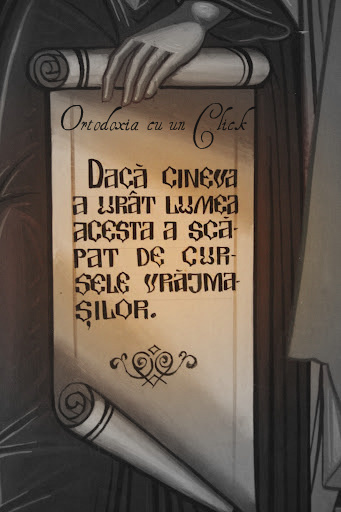 Ortodoxia cu un Click
Dacă cineva
a urât lumea
acesta a scă-
pat de cur-
sele vrăjma-
șilor.